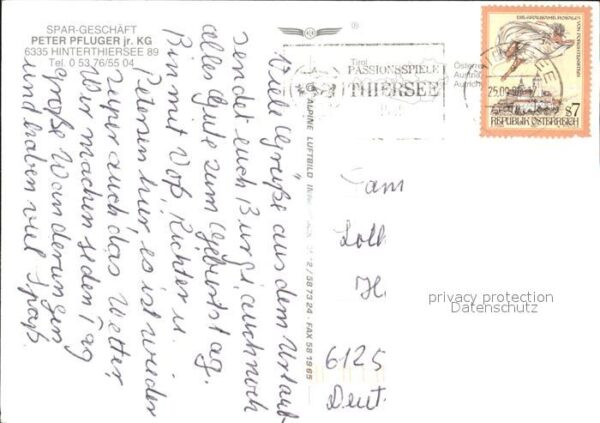 SPAR-GESCHÄFT
PETER PFLUGER jr. KG
6335 HINTERTHIERSEE 89
Tel. 0 53,76/55 04
Viele Grüße aus dem Urlaub
sendet euch Burgi auch noch
alles Gute zum Geburtstag.
Bin mit Voß Richter u.
Petersen hier, es ist wieder
super auch das Wetter,
Wir machen jeden Tag
große Wanderungen
und haben viel Spaß.
®
ALPINE LUFTBILD
/ 58 73 24 - FAX 58 19 65
Tirol
PASSIONSSPIELE
THIERSEE
25.09.
VON
S7
REPUBLIK ÖSTERREICH
Fam
Loll
H.
6125
Deut
privacy protection
Datenschutz